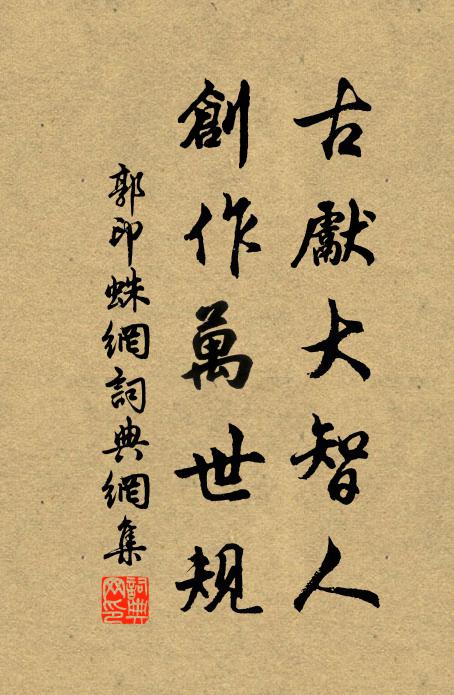 古獻大智人
創作萬世規
郭印蛛網詞典網集
詞典網印